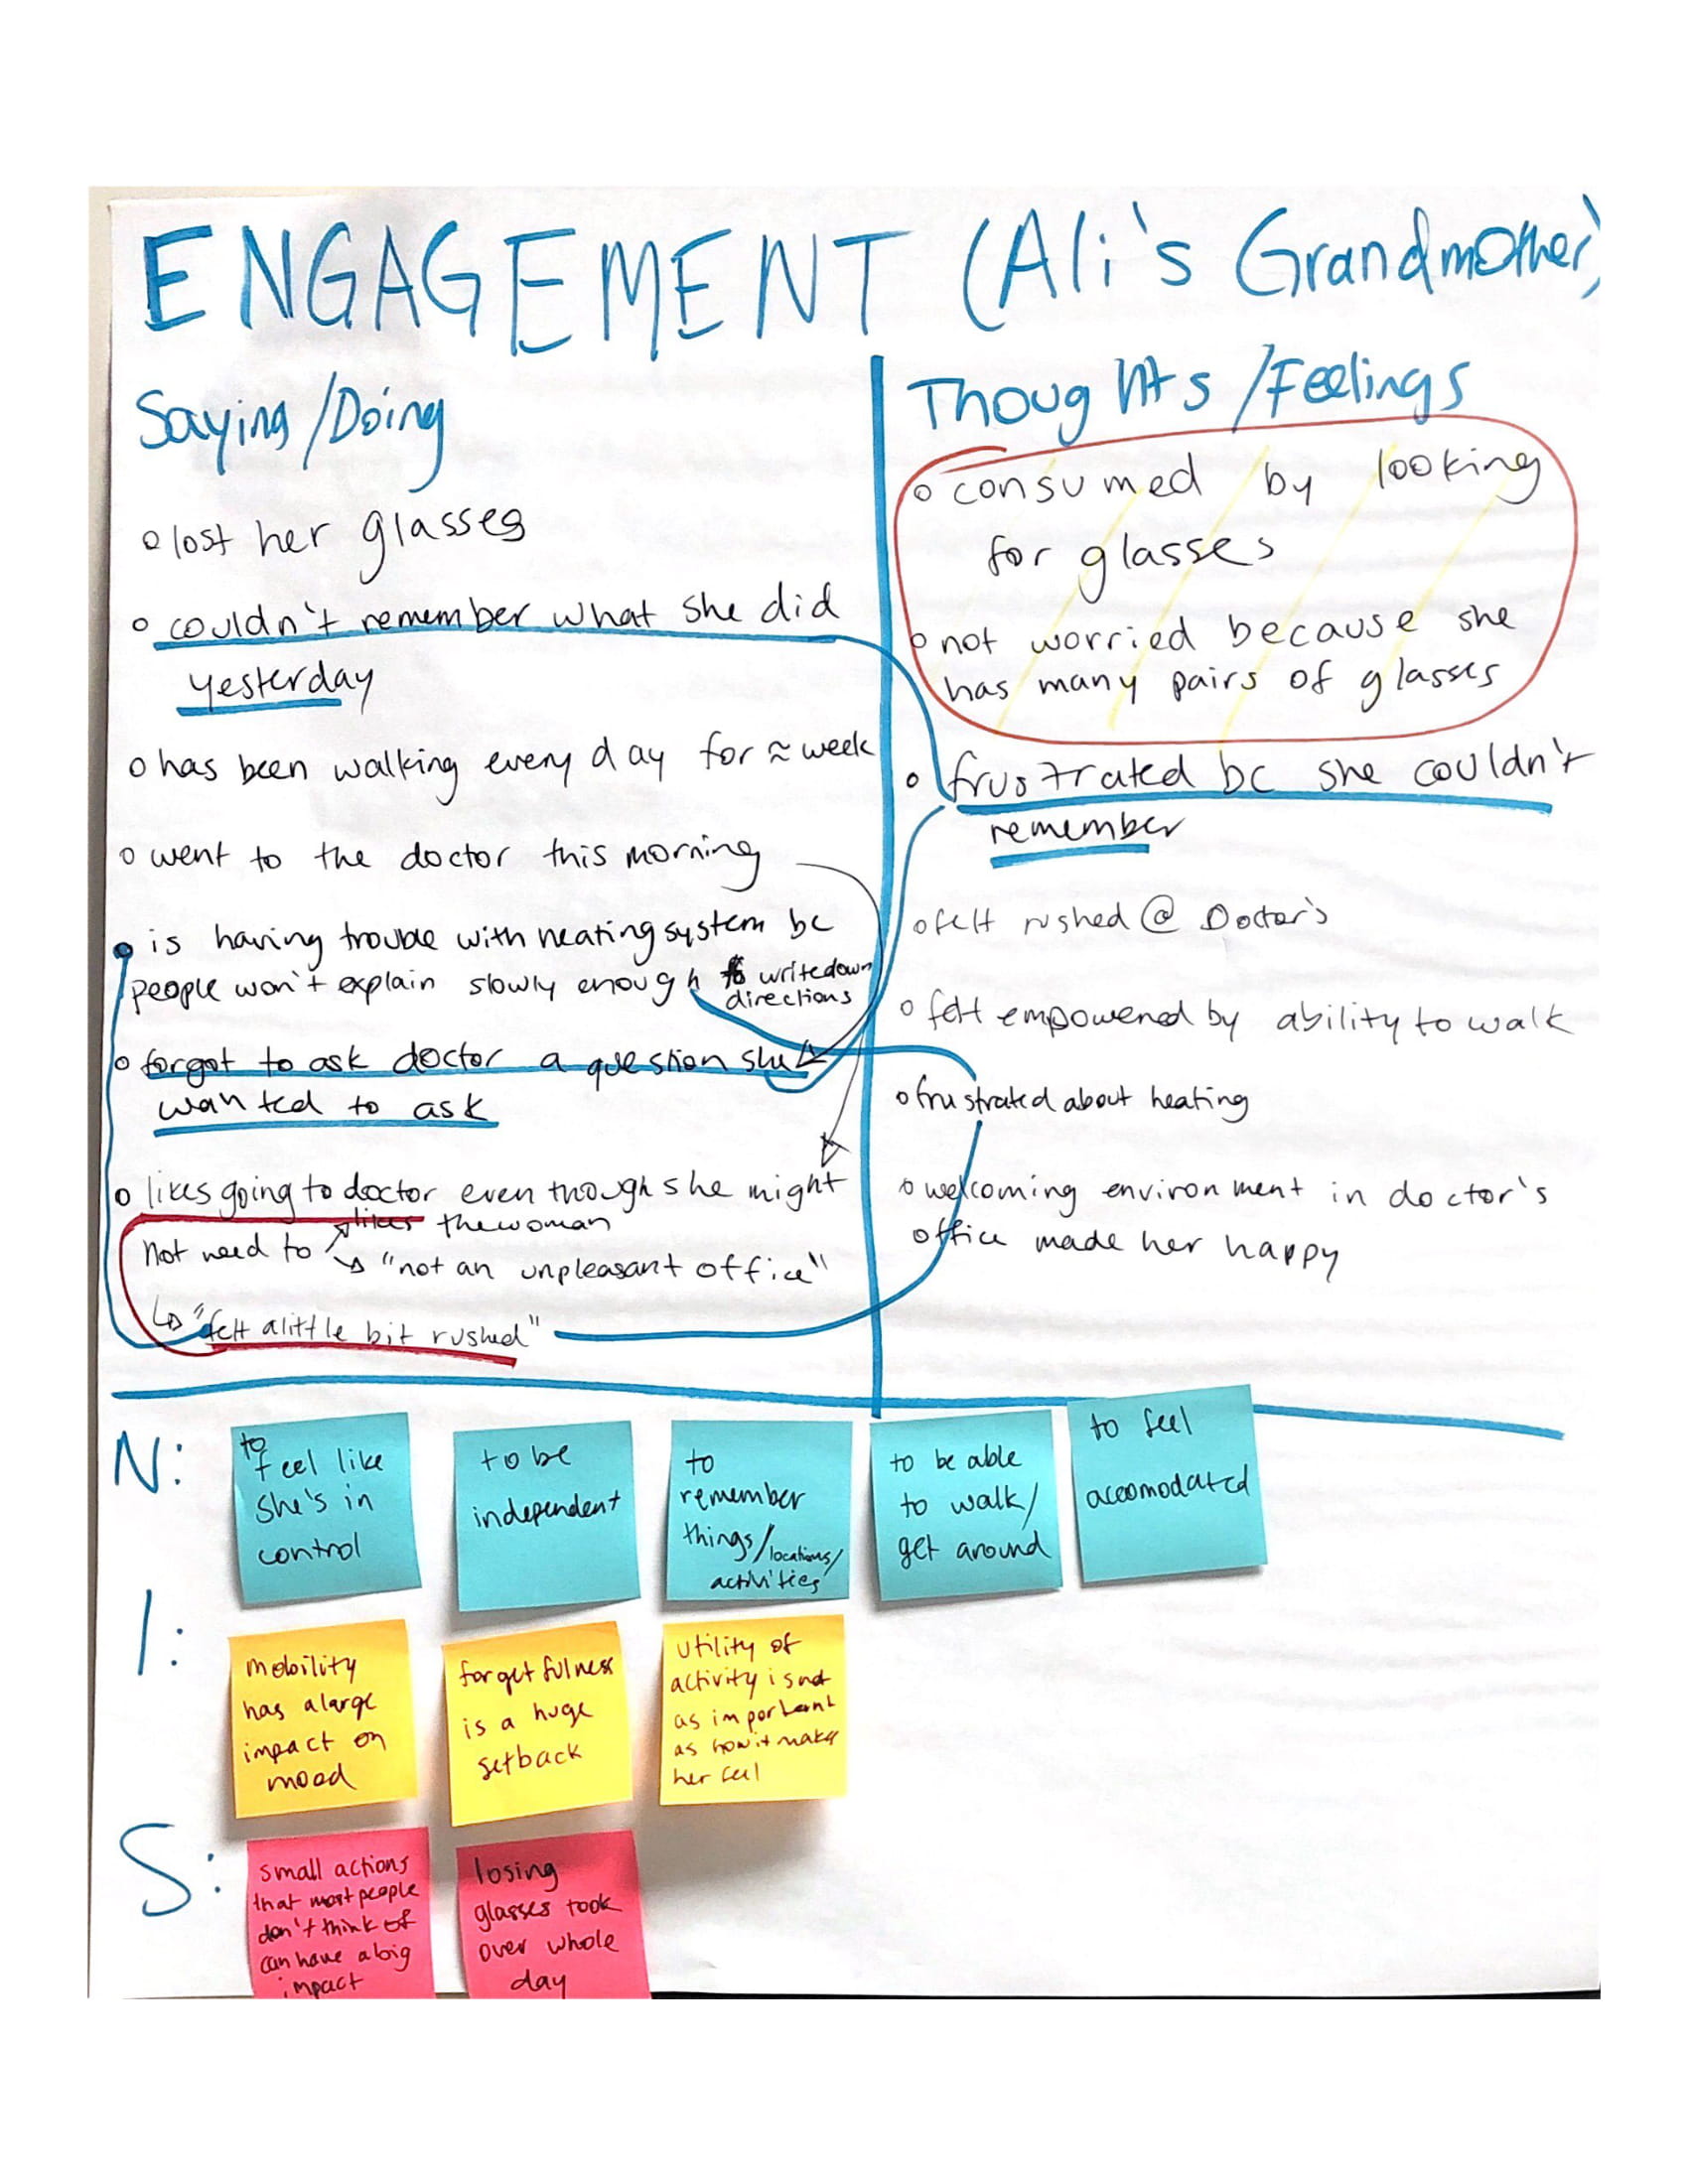 ENGAGEMENT (Ali's Grandmother)
Saying/Doing
o lost her glasses
o couldn't remember what she did
yesterday
o has been walking every day for ≈ week
o went to the doctor this morning
• is having trouble with heating system bc
people won't explain slowly enough to write down
directions
o forgot to ask doctor a question she
wanted to ask
o likes going to doctor even though she might
not need to
likes the woman
"not an unpleasant office"
↳ "felt a little bit rushed"
Thoughts/Feelings
o consumed by looking
for glasses
o not worried because she
has many pairs of glasses
o frustrated bc she couldn't
remember
o felt rushed @ Doctor's
o felt empowered by ability to walk
o frustrated about heating
o welcoming environment in doctor's
office made her happy
N:
to
feel like
she's in
control
to be
independent
to
remember
things/locations/
activities
to be able
to walk/
get around
to feel
accomodated
I:
mobility
has a large
impact on
mood
forgetfulness
is a huge
setback
utility of
activity is not
as important
as how it makes
her feel
S:
small actions
that most people
don't think of
can have a big
impact
losing
glasses took
over whole
day